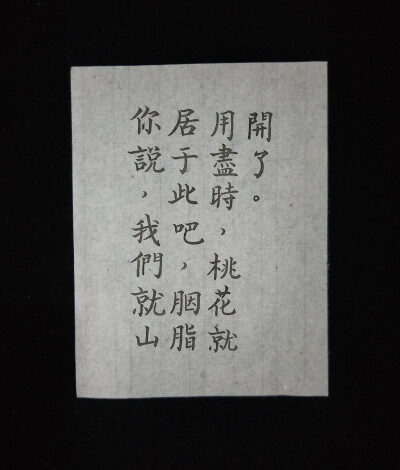 你說，我們就山
居于此吧，胭脂
用盡時，桃花就
開了。